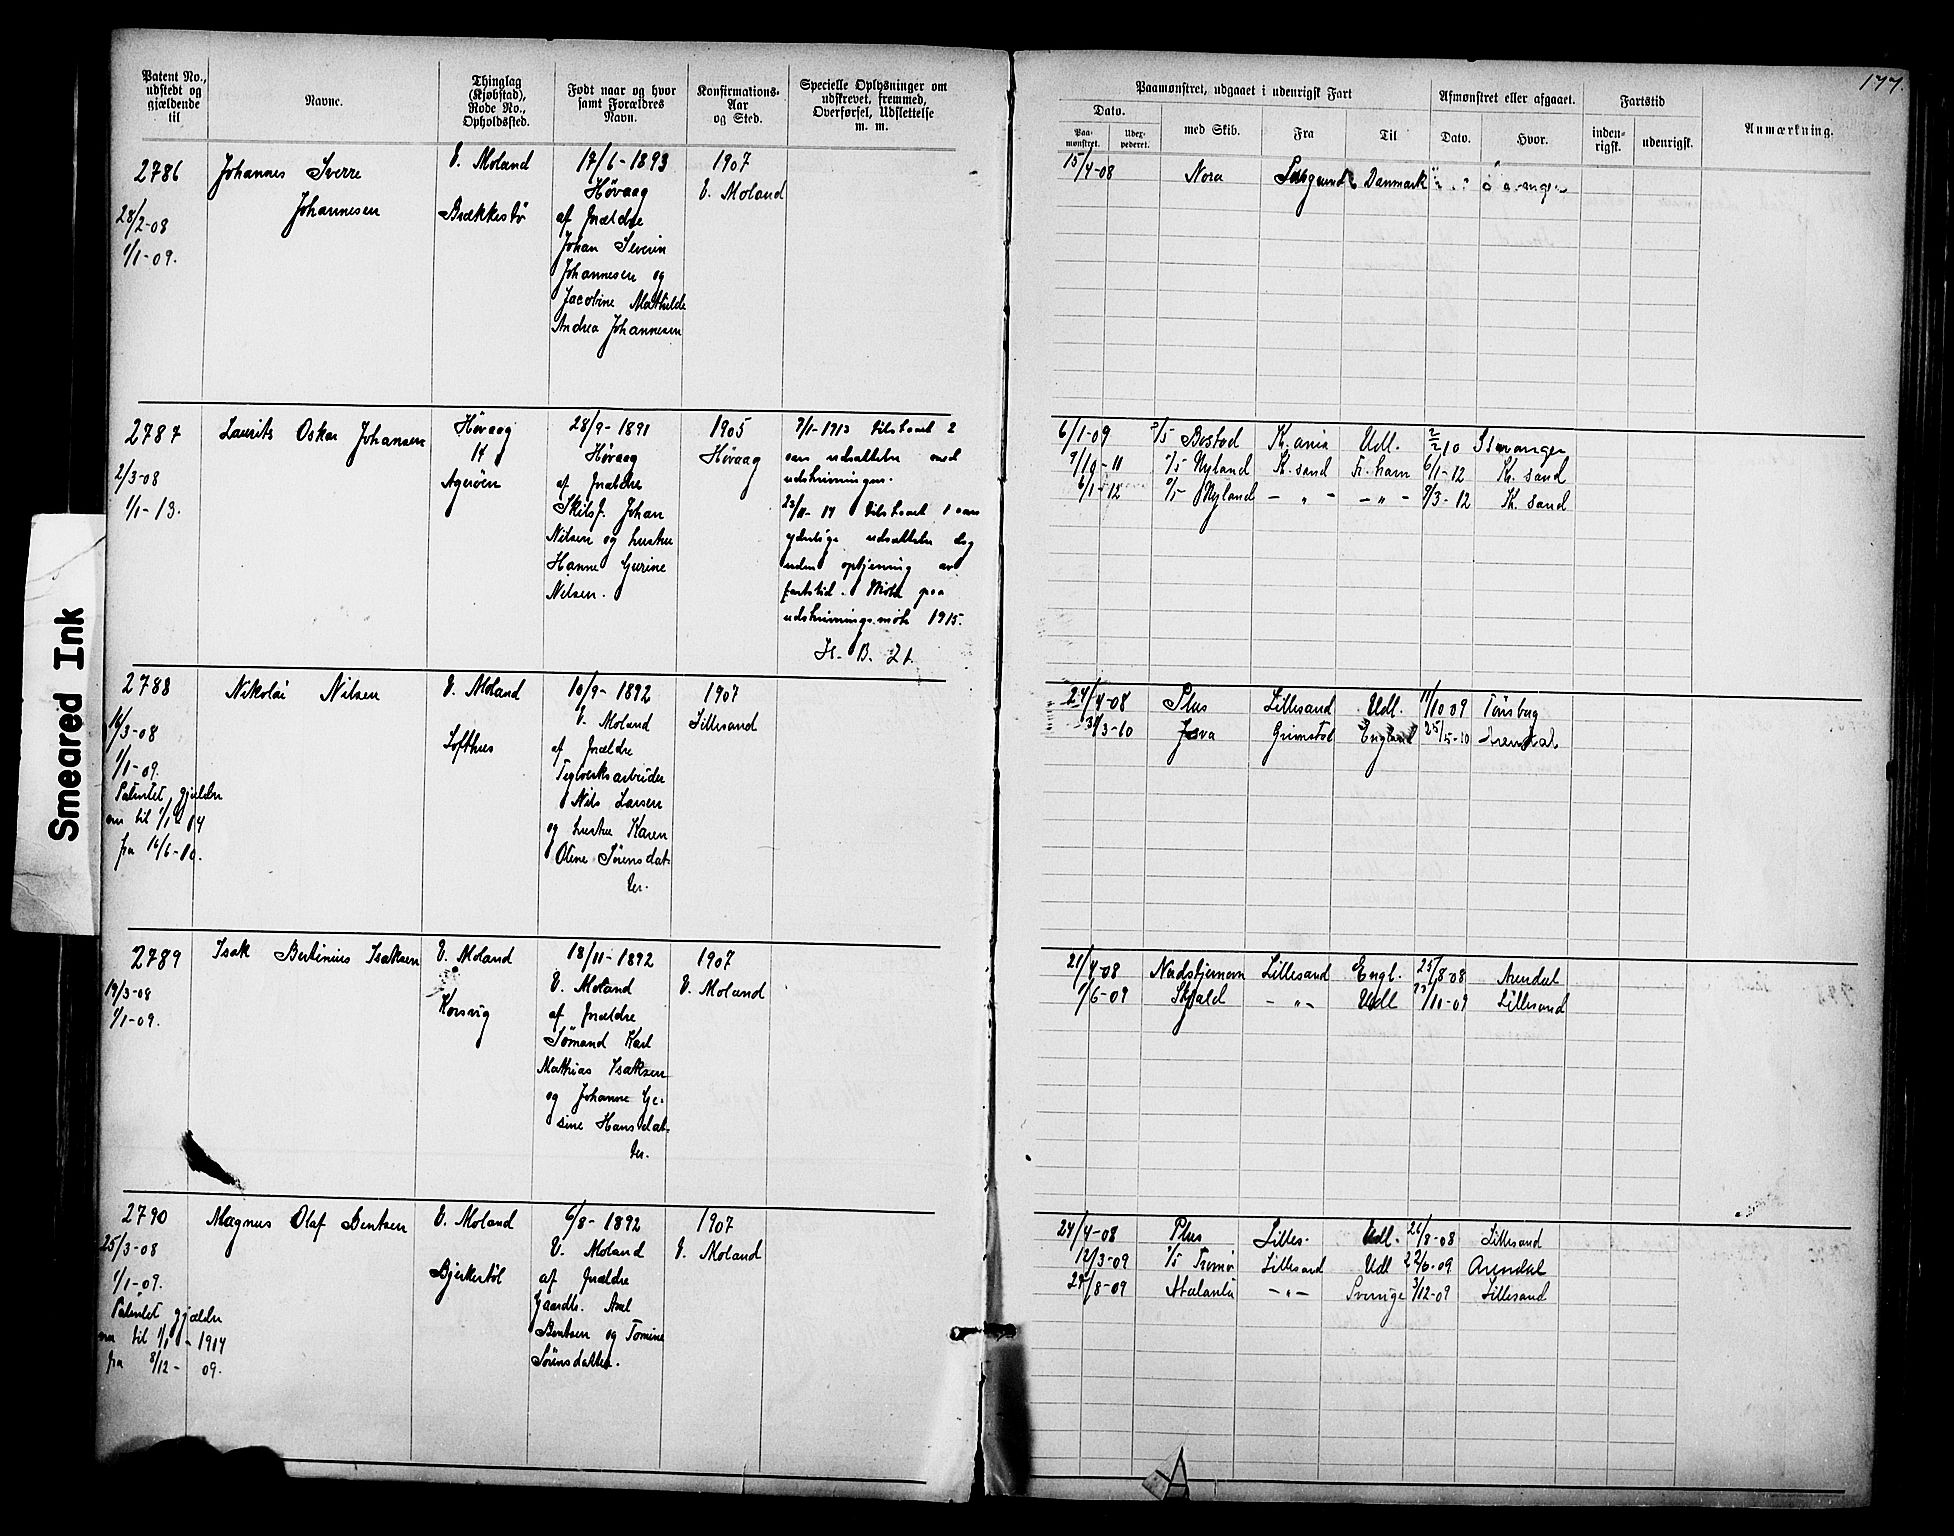 177.
Patent No., udstedt og gjældende til
Navne.
Thinglag (Kjøbstad), Rode No., Opholdssted.
Født naar og hvor samt Forældres Navn.
Konfirmations- Aar og Sted.
Specielle Oplysninger om udskrevet, fremmed, Overførsel, Udslettelse m. m.
Paamønstret, udgaaet i udenrigsk Fart
Dato.
Paa- mønstret.
Udex- pederet.
med Skib.
Fra
Til
Afmønstret eller afgaaet.
Dato.
Hvor.
Fartstid
inden- rigsk.
udenrigsk.
Anmærkning.
2786
28/2-08
1/1-09.
Johannes Sverre
Johannesen
V. Moland
Brækkestø
17/6-1893
Høvaag
af forældre
Johan Severin
Johannesen og
Jacobine Mathilde
Andrea Johannesen
1907
V. Moland
15/4-08 Nora Danmark
2787
2/3-08
1/1-13.
Laurits Oskar Johansen
Høvaag
14
Agerøen
28/9-1891
Høvaag
af forældre
Johan
Nilsen og hustru
Hanne Gurine
Nilsen.
1905
Høvaag
tilstaaet 2
aars udsættelse med
udskrivningen.
23/11-14 tilstaaet 1 aars
yderlige udsættelse dog
uden optjening av
fartstid. Møte paa
udskrivningsmøte 1915.
6/1-09 Bestod K.ania Udl. Stavanger
9/10-11 Nyland K.sand Fr. havn 6/1-12 Kr. sand
6/1-12 Nyland - " - - " - 9/3-12 K. sand
2788
16/3-08
1/1-09.
Patentet gjælder
nu til 1/1-14
fra 16/6-10.
Nikolai Nilsen
V. Moland
Lofthus
10/9-1892
V. Moland
af forældre
Teglverksarbeider
Nils Larsen
og hustru Karen
Oline Sørensdat-
ter.
1907
Lillesand
24/4-08 Plus Lillesand Udl. 11/10 09 Tønsberg
3/3-10 Java Grimstad England 25/5-10
2789
19/3-08
1/1-09.
Isak Bertinius Isaksen
V. Moland
Korsvig
18/11-1892
V. Moland
af forældre
Sømand Karl
Mathias Isaksen
og Johanne Ge-
sine Hansdat-
ter.
1907
V. Moland
21/4-08 Nordstjernen Lillesand Engl. 25/8-08 Arendal
1/6-09 Skjald - " - Udl 23/11-09 Lillesand
2790
25/3-08
1/1-09.
Patentet gjælder
nu til 1/1-1914
fra 8/12-09.
Magnus Olaf Bentsen
V. Moland
Bjerkestøl
6/8-1892
V. Moland
af forældre
Gaardbr. Axel
Bentsen og Tomine
Sørensdatter.
1907
V. Moland
24/4-08 Plus Lilles- Udl. 26/8-08 Lillesand
12/3-09 Tromø Lillesand Udl 22/6-09 Arendal
24/8-09 Atalanta - " - Sverige 3/12-09 Lillesand
Smeared Ink